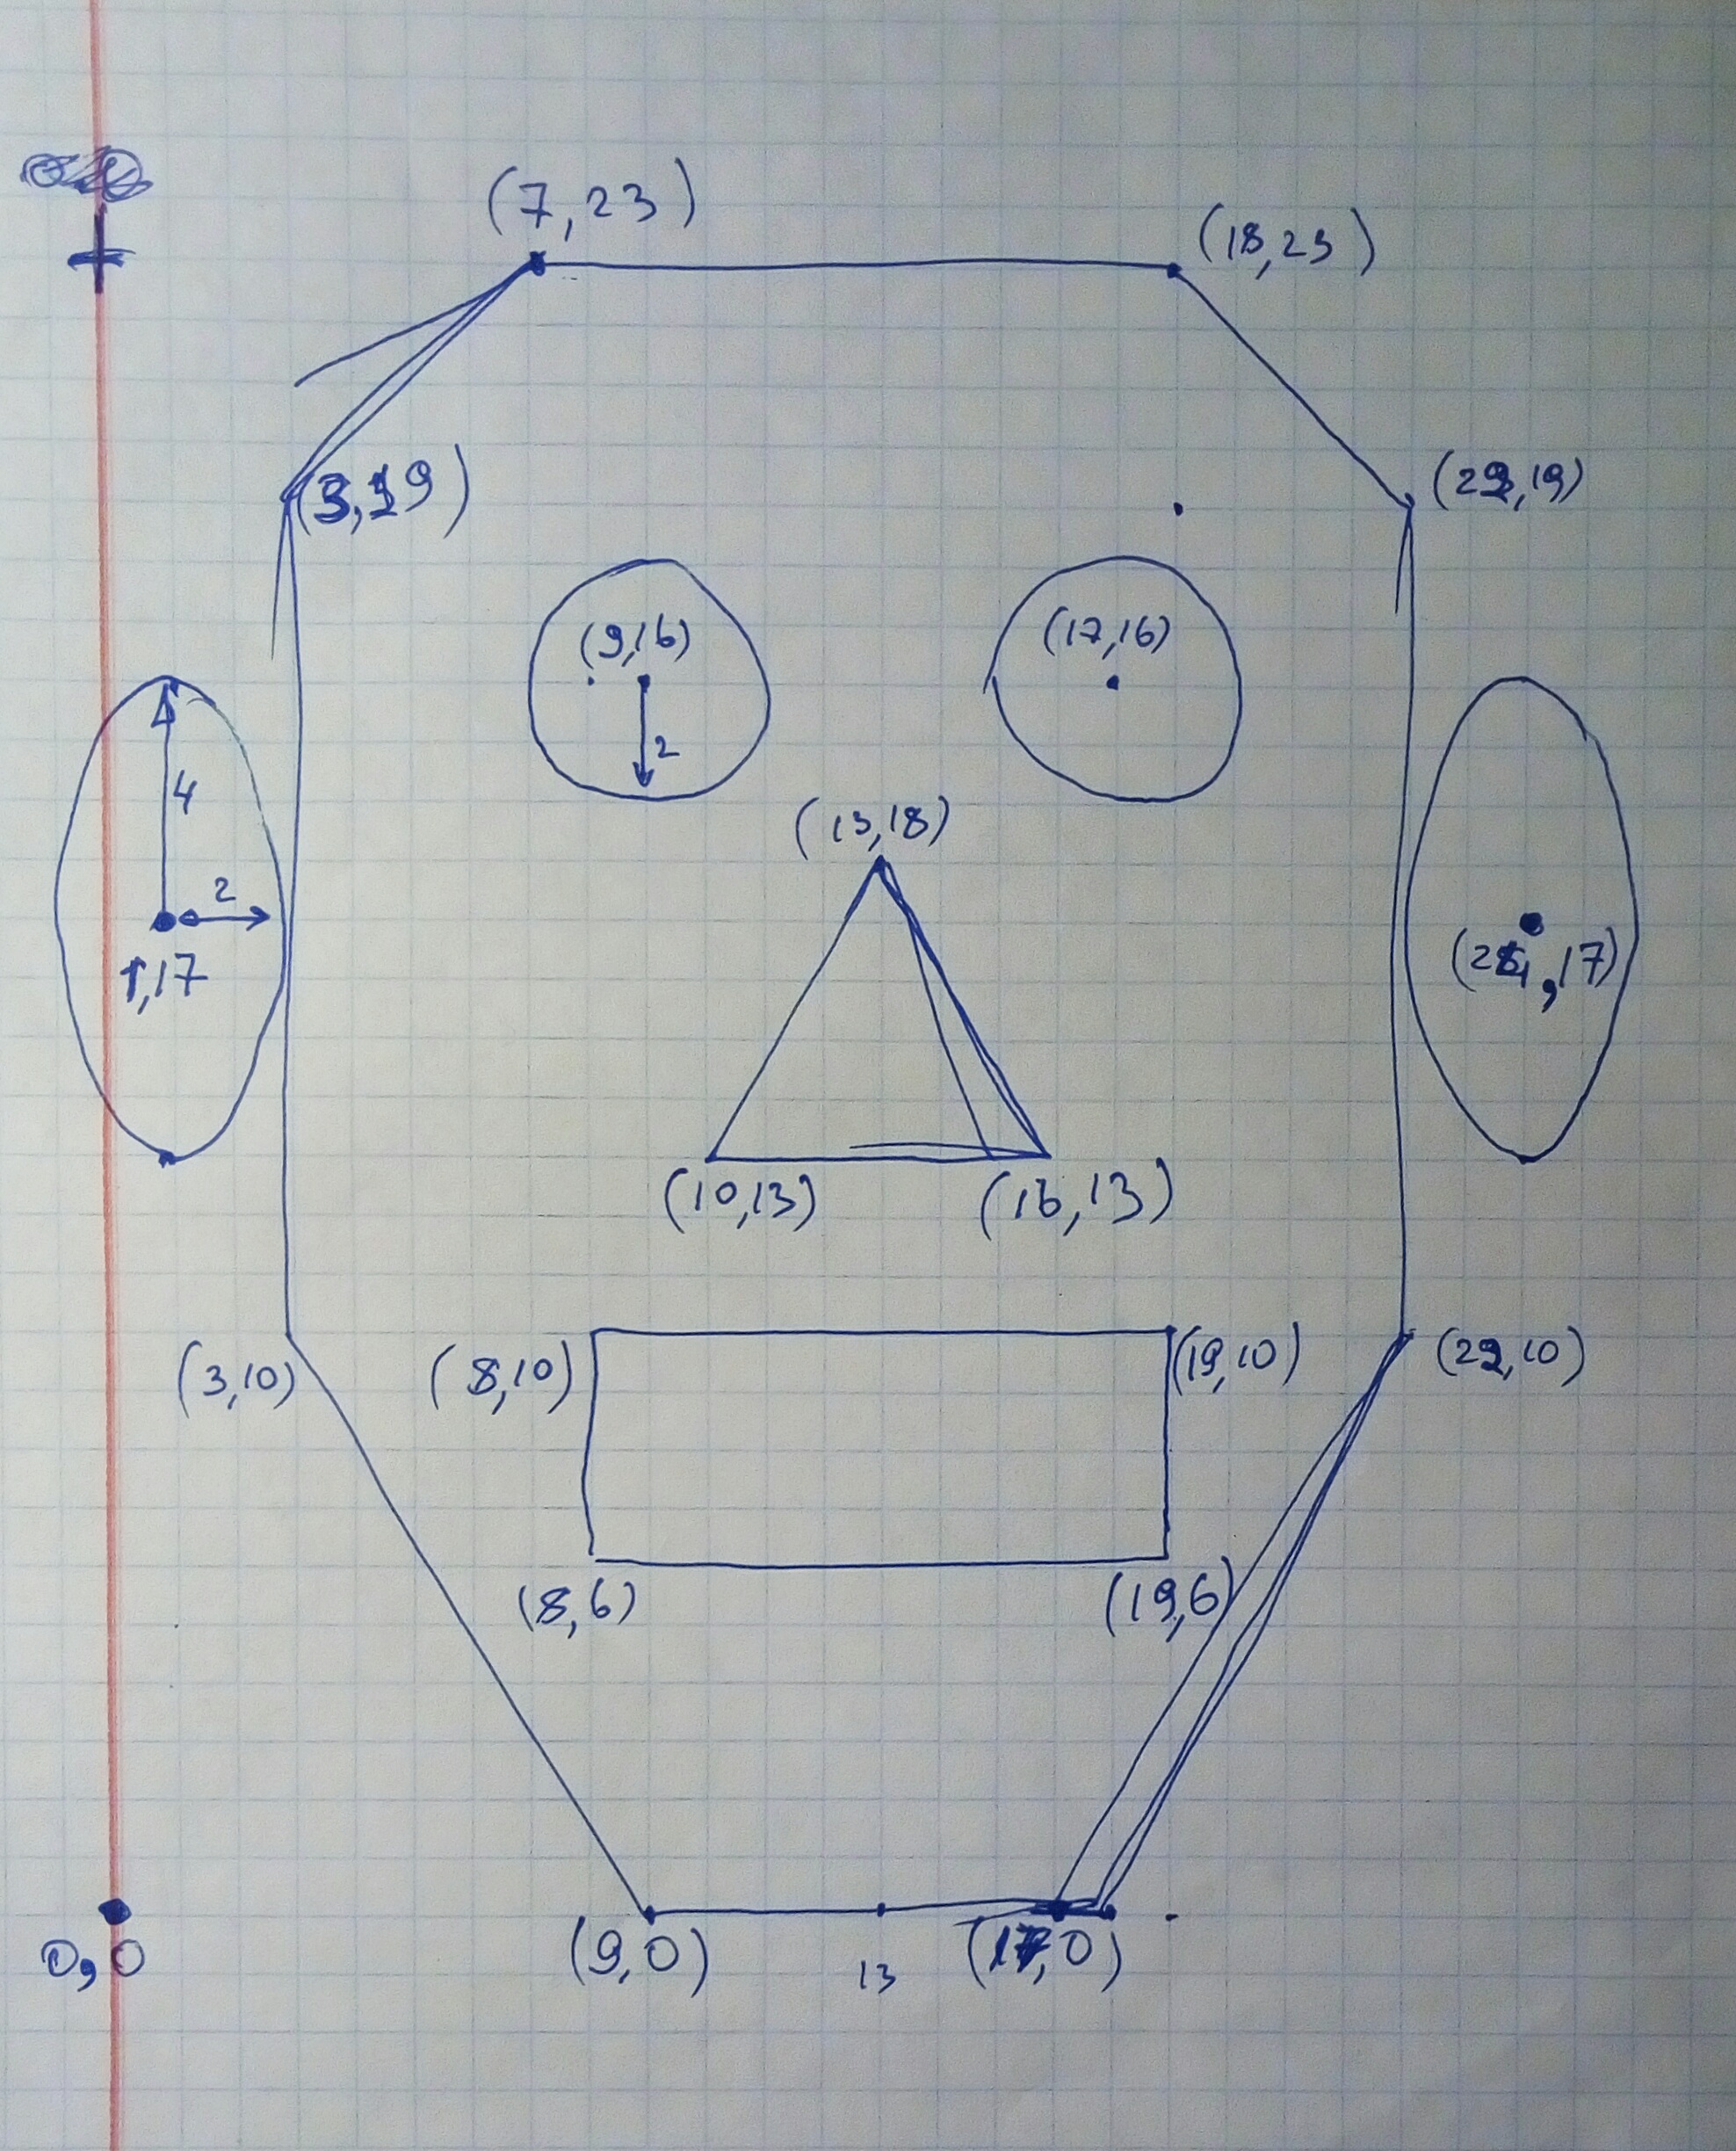 (7,23)
(18,23)
(3,19)
(22,19)
(9,16)
(17,16)
2
4
(13,18)
2
1,17
(24,17)
(10,13)
(16,13)
(3,10)
(8,10)
(19,10)
(22,10)
(8,6)
(19,6)
0,0
(9,0)
13
(17,0)